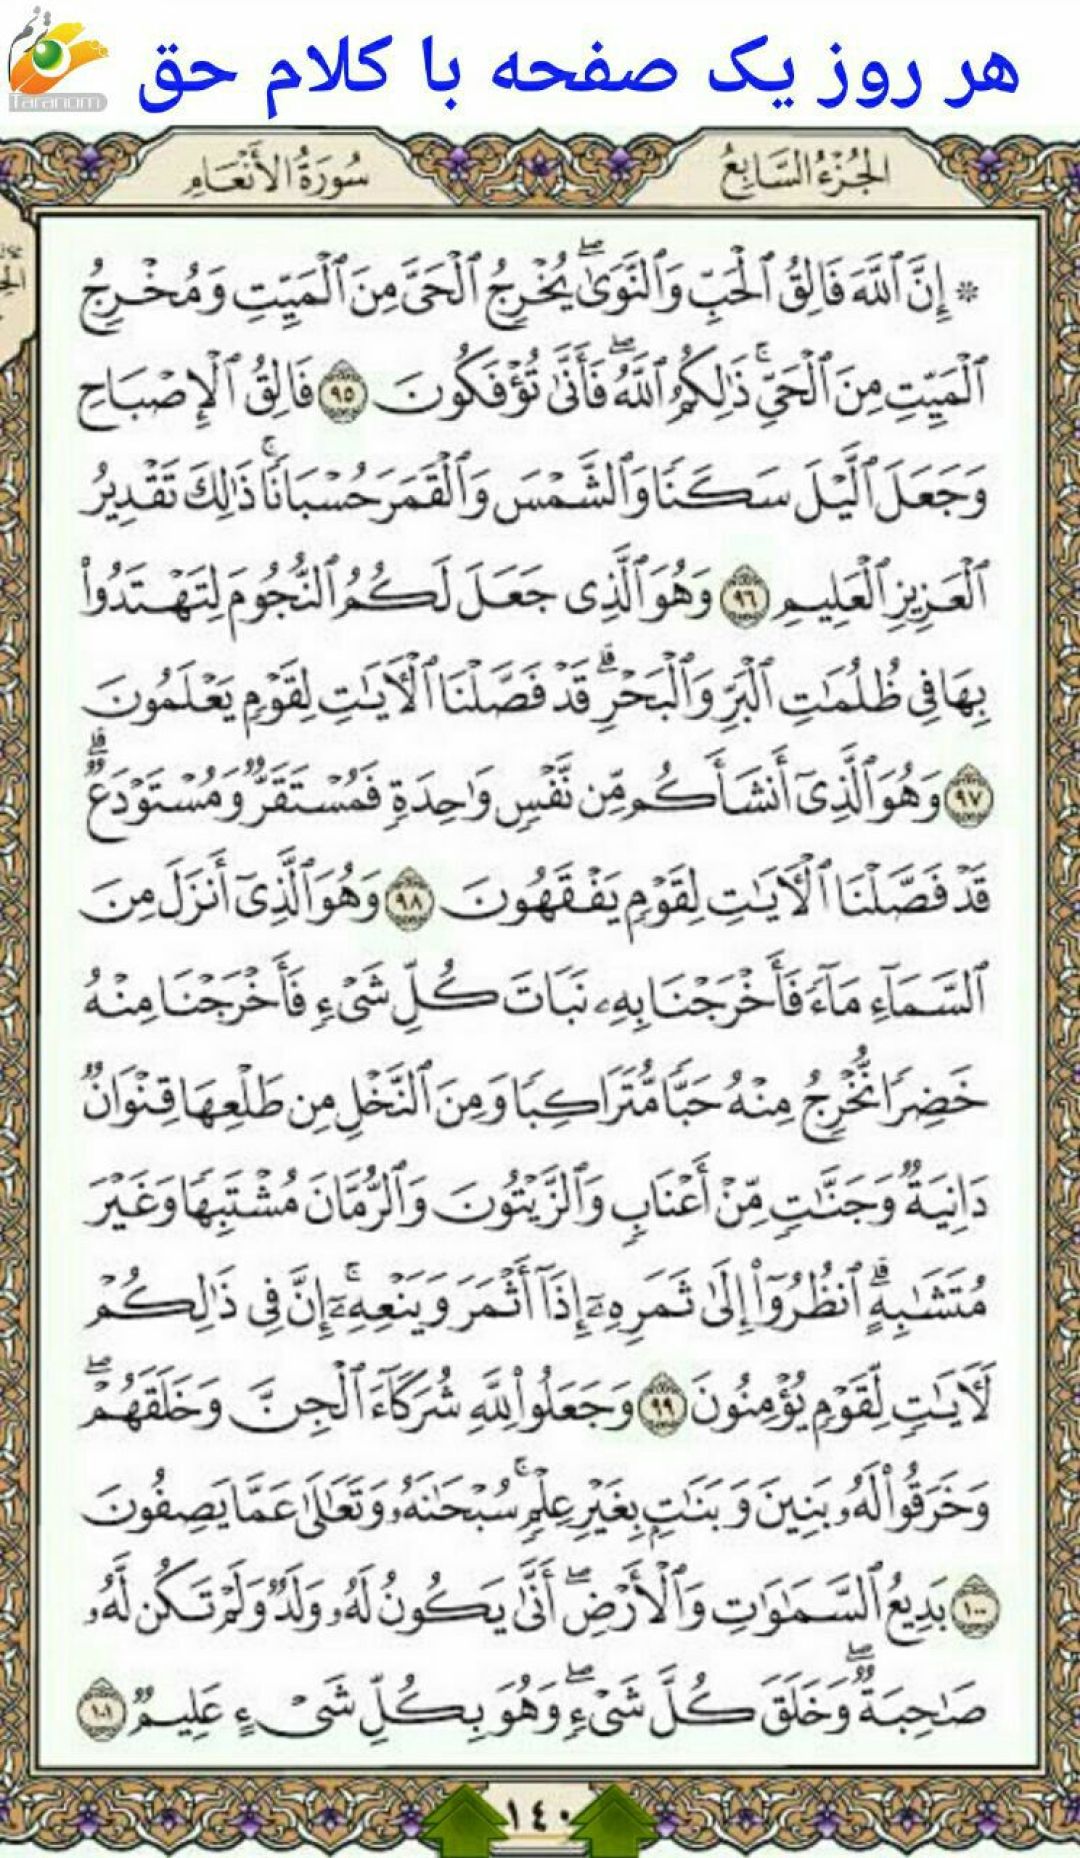 ترنم
taranom
هر روز یک صفحه با کلام حق
الجُزْءُ السَّابِعُ
سُورَةُ الأَنْعَام
۞ إِنَّ ٱللَّهَ فَالِقُ ٱلْحَبِّ وَٱلنَّوَىٰۖ يُخْرِجُ ٱلْحَىَّ مِنَ ٱلْمَيِّتِ وَمُخْرِجُ
ٱلْمَيِّتِ مِنَ ٱلْحَىِّۚ ذَٰلِكُمُ ٱللَّهُۖ فَأَنَّىٰ تُؤْفَكُونَ ٩٥ فَالِقُ ٱلْإِصْبَاحِ
وَجَعَلَ ٱلَّيْلَ سَكَنًا وَٱلشَّمْسَ وَٱلْقَمَرَ حُسْبَانًاۚ ذَٰلِكَ تَقْدِيرُ
ٱلْعَزِيزِ ٱلْعَلِيمِ ٩٦ وَهُوَ ٱلَّذِى جَعَلَ لَكُمُ ٱلنُّجُومَ لِتَهْتَدُوا۟
بِهَا فِى ظُلُمَٰتِ ٱلْبَرِّ وَٱلْبَحْرِۗ قَدْ فَصَّلْنَا ٱلْءَايَٰتِ لِقَوْمٍ يَعْلَمُونَ
٩٧ وَهُوَ ٱلَّذِىٓ أَنشَأَكُم مِّن نَّفْسٍ وَٰحِدَةٍ فَمُسْتَقَرٌّ وَمُسْتَوْدَعٌۗ
قَدْ فَصَّلْنَا ٱلْءَايَٰتِ لِقَوْمٍ يَفْقَهُونَ ٩٨ وَهُوَ ٱلَّذِىٓ أَنزَلَ مِنَ
ٱلسَّمَآءِ مَآءً فَأَخْرَجْنَا بِهِۦ نَبَاتَ كُلِّ شَىْءٍ فَأَخْرَجْنَا مِنْهُ
خَضِرًا نُّخْرِجُ مِنْهُ حَبًّا مُّتَرَاكِبًا وَمِنَ ٱلنَّخْلِ مِن طَلْعِهَا قِنْوَانٌ
دَانِيَةٌ وَجَنَّٰتٍ مِّنْ أَعْنَابٍ وَٱلزَّيْتُونَ وَٱلرُّمَّانَ مُشْتَبِهًا وَغَيْرَ
مُتَشَٰبِهٍۗ ٱنظُرُوٓا۟ إِلَىٰ ثَمَرِهِۦٓ إِذَآ أَثْمَرَ وَيَنْعِهِۦٓۚ إِنَّ فِى ذَٰلِكُمْ
لَءَايَٰتٍ لِّقَوْمٍ يُؤْمِنُونَ ٩٩ وَجَعَلُوا۟ لِلَّهِ شُرَكَآءَ ٱلْجِنَّ وَخَلَقَهُمْۖ
وَخَرَقُوا۟ لَهُۥ بَنِينَ وَبَنَٰتٍۭ بِغَيْرِ عِلْمٍۚ سُبْحَٰنَهُۥ وَتَعَٰلَىٰ عَمَّا يَصِفُونَ
١٠٠ بَدِيعُ ٱلسَّمَٰوَٰتِ وَٱلْأَرْضِۖ أَنَّىٰ يَكُونُ لَهُۥ وَلَدٌ وَلَمْ تَكُن لَّهُۥ
صَٰحِبَةٌۖ وَخَلَقَ كُلَّ شَىْءٍۖ وَهُوَ بِكُلِّ شَىْءٍ عَلِيمٌ ١٠١
١٤٠